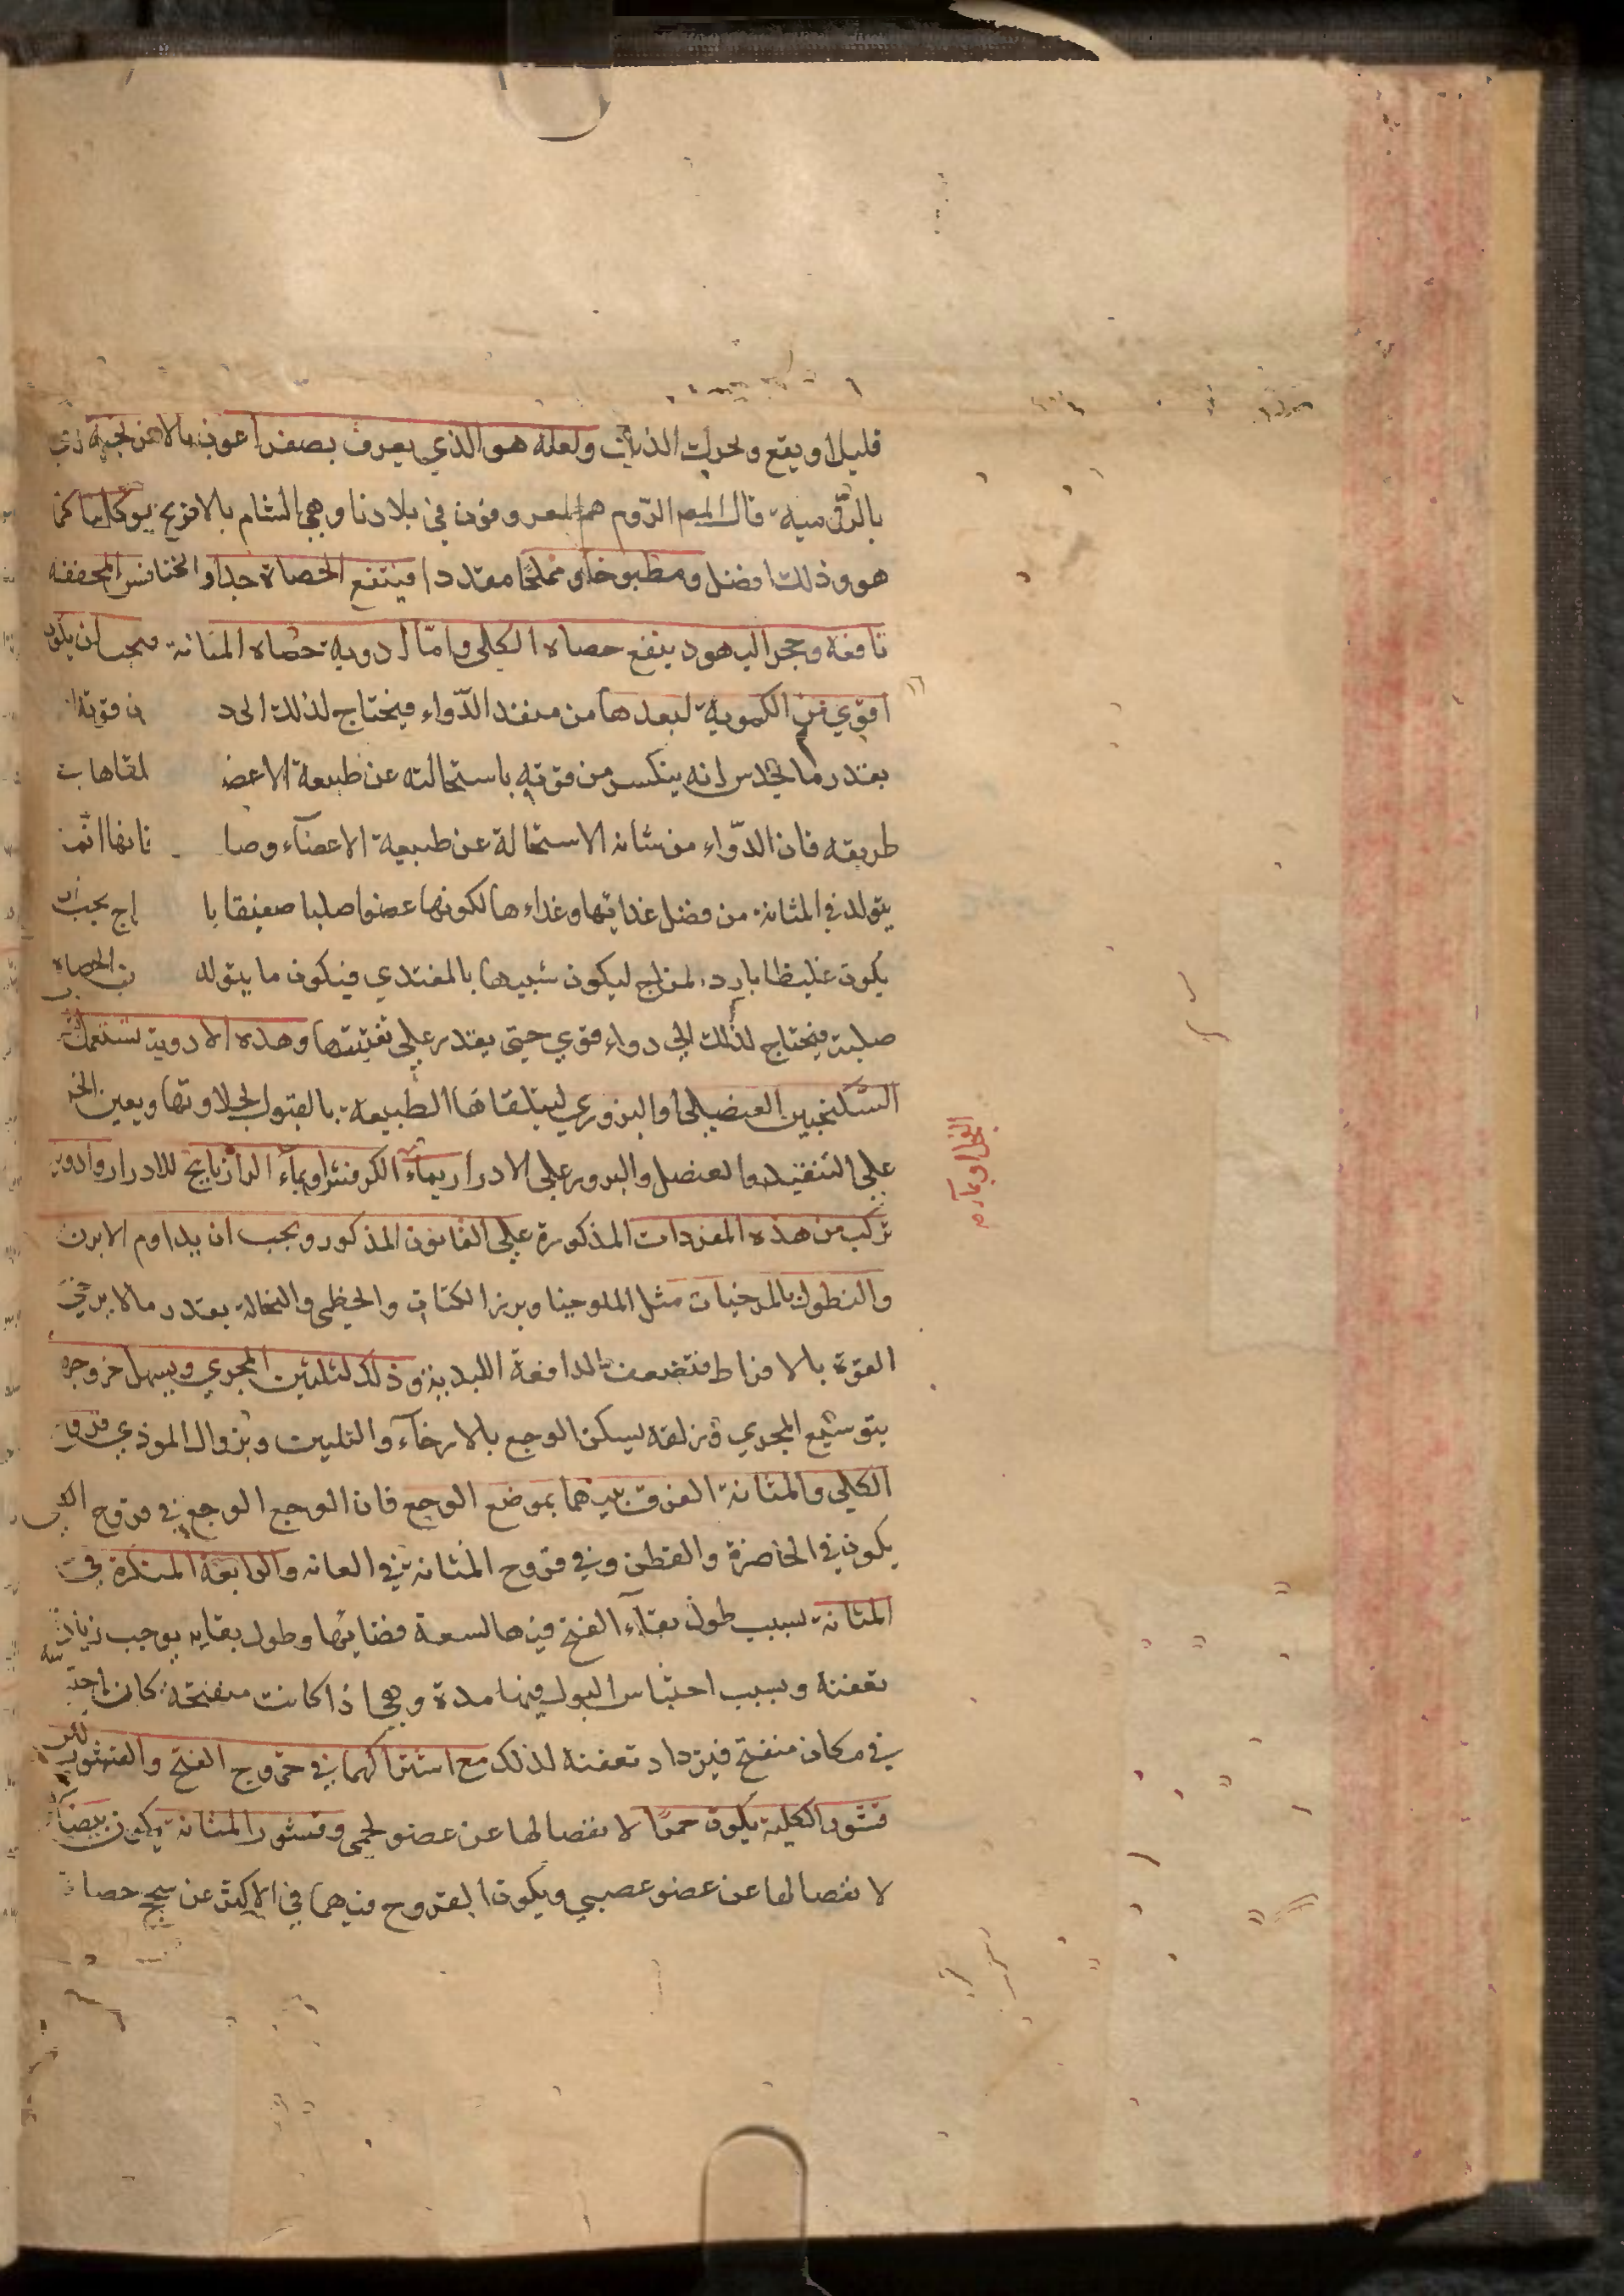 قليلا ويقع ويحرك الذنب ولعله هو الذي يعرف بصفراعون بالافرنجية
بالرومية قال المص الروم هم المعروفون في بلادنا وهي الشام بالافرنج يوكل نيا كما
هو وذلك افضل ومطبوخا ومملحا مقددا فينفع الحصاة جدا والخنافس المجففه
نافعة وحجر اليهود ينفع حصاه الكلى واما ادوية حصاه المثانة فيجب ان يكون
اقوي من الكلوية لبعدها من منفذ الدواء فيحتاج لذلك الى ن قوته
بقدر ما يحدس انه ينكسر من قوته باستحالته عن طبيعة الاعضا لقاها ب
طريقه فان الدواء من شانه الاستحالة عن طبيعة الاعضآء وصا نانها انما
يتولد في المثانة من فضل غذايها وغذاءها لكونها عضوا صلبا صفيقا با اج يجب ان
يكون غليظا بارد المزاج ليكون شبيها بالمغتدي فيكون ما يتولد الحصاه
صلبة فيحتاج لذلك الي دواء قوي حتى يقدر علي تفتيتها وهذه الادوية تستعمل
السكنجبين العنصلي او البزوري ليتلقاها الطبيعة بالقبول لحلاوتها ويعين الخل
علي التنفيذ والعنصل والبزور علي الادرار بمآء الكرفس او بمآء الرازيانج للادرار وادوية
تركب من هذه المفردات المذكورة علي القانون المذكور ويجب ان يداوم الابزن
والنطول بالمرخيات مثل الملوخيا وبزر الكتان والخطمي والنخالة بقدر ما لا يرخي
القوة بالافراط فتضعف الدافعة اللبدية وذلك لتليين المجري ويسهل خروجه
بتوسيع المجري وزلقه يسكن الوجع بالارخآء والتليين وبزوال الموذي قروح
الكلي والمثانة الفرق بينهما بموضع الوجع فان الوجع الوجع في قروح الكلي
يكون في الخاصرة والقطن وفي قروح المثانة في العانه والرايحة المنكرة في
المثانة بسبب طول بقآء القيح فيها لسعة فضائها وطول بقايه يوجب زيادة
تعفنه وبسبب احتباس البول فيها مدة وهي اذا كانت متقيحة كان
في مكان متقيح فيزداد تعفنه لذلك مع اشتراكهما في خروج القيح والقشور لكن
قشور الكلية يكون حمرا لانفصالها عن عضو لحمي وقشور المثانة يكون بيضآ
لانفصالها عن عضو عصبي ويكون القروح فيهما في الاكثر عن سحج حصاة
الفجل او بمآء